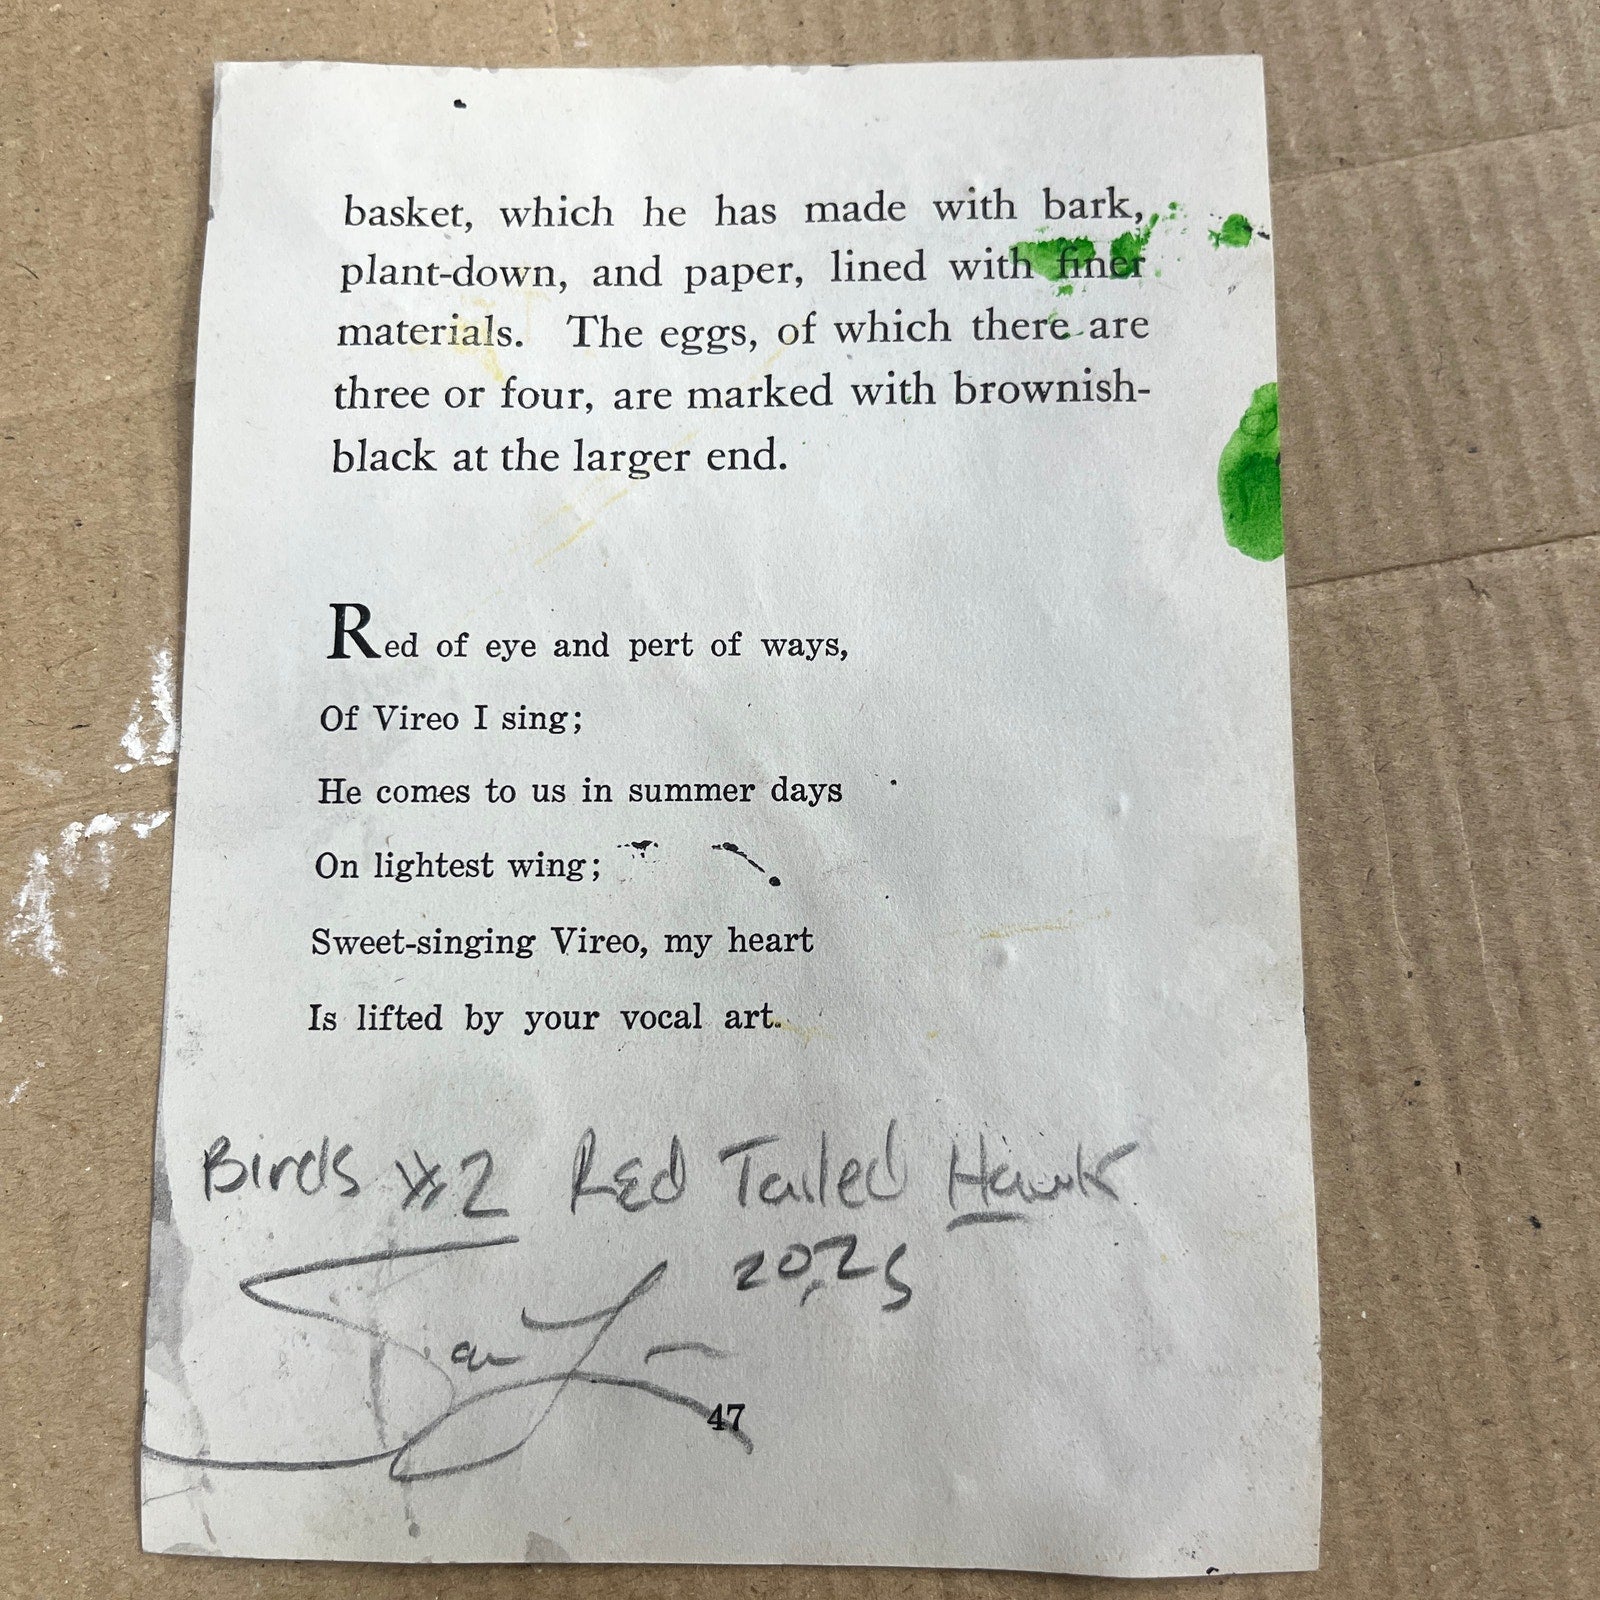 basket, which he has made with bark,
plant-down, and paper, lined with finer
materials. The eggs, of which there are
three or four, are marked with brownish-
black at the larger end.
Red of eye and pert of ways,
Of Vireo I sing;
He comes to us in summer days
On lightest wing;
Sweet-singing Vireo, my heart
Is lifted by your vocal art.
Birds #2 Red Tailed Hawk
2025
47